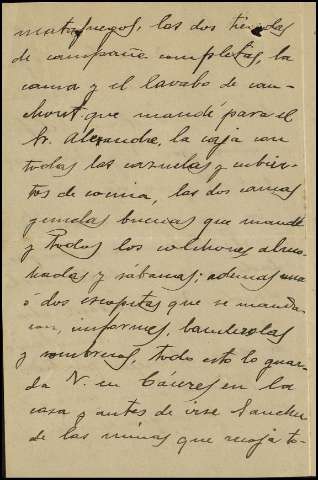 matafuegos, las dos tiendas
de campaña completas, la
cama y el lavabo de cau-
chout que mandé para el
Sr. Alexandre, la caja con
todas las cazuelas y cubier-
tos de cocina, las dos camas
gemelas buenas que mandé
y todos los colchones almo-
hadas y sabanas; ademas una
o dos escopetas que se manda-
ron, uniformes, banderolas
y sombreros, todo esto lo guar-
da N. en Cáceres en la
casa y antes de irse Sanchez
de las minas que recoja to-